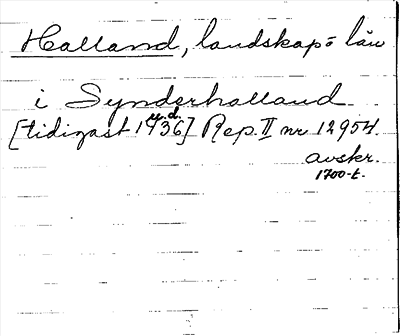 Halland, landskap = län
i Synderhalland
u.d.
[tidigast 1436] Rep. II nr 12954.
avskr.
1700-t.